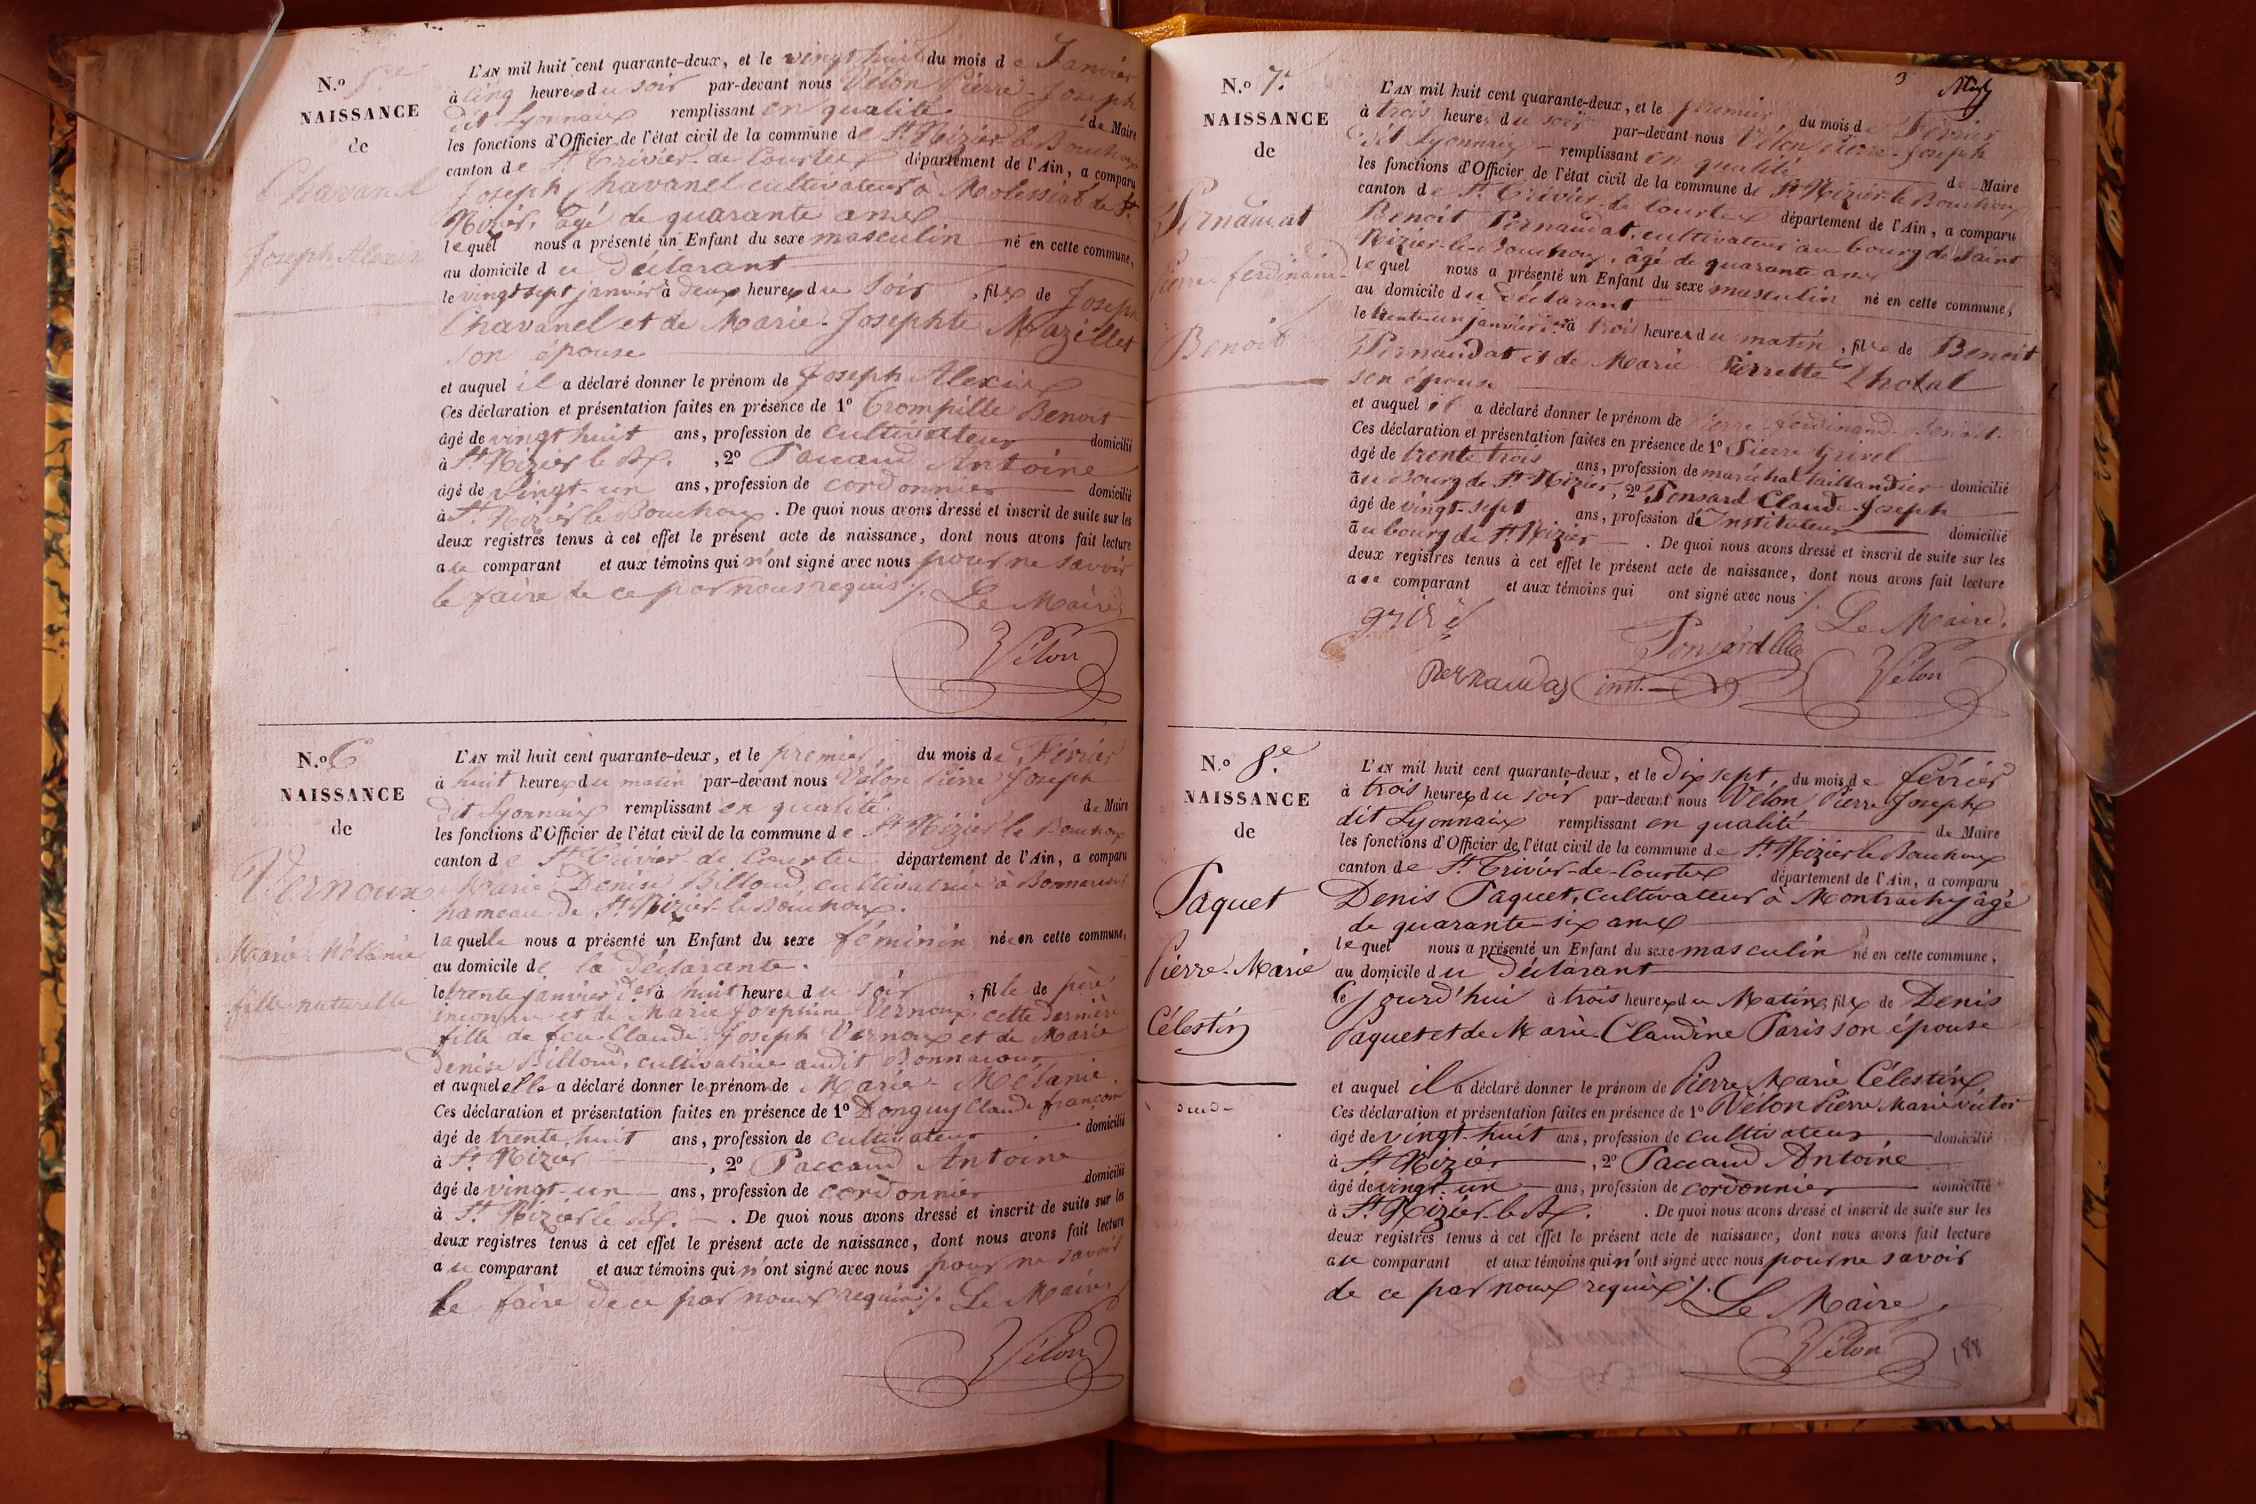 N.o 5e
NAISSANCE
de
Chavanel
Joseph Alexis
L'AN mil huit cent quarante-deux, et le vingt huit du mois de Janvier
à cinq heures du soir par-devant nous Vélon Pierre-Joseph
dit Lyonnais remplissant en qualité de Maire
les fonctions d'Officier de l'état civil de la commune de St Nizier le Bouchoux
canton de St Trivier-de-Courtes département de l'Ain, a comparu
Joseph Chavanel cultivateur à Molessiat de St
Nizier, âgé de quarante ans
lequel nous a présenté un Enfant du sexe masculin né en cette commune,
au domicile du déclarant
le vingt sept janvier à deux heures du soir, fils de Joseph
Chavanel et de Marie-Josephte Mazillet
son épouse
et auquel il a déclaré donner le prénom de Joseph Alexis
Ces déclaration et présentation faites en présence de 1o Trompille Benoit
âgé de vingt huit ans, profession de cultivateur domicilié
à St Nizier le Bx. , 2o Paccaud Antoine
âgé de vingt-un ans, profession de cordonnier domicilié
à St Nizier le Bouchoux. De quoi nous avons dressé et inscrit de suite sur les
deux registres tenus à cet effet le présent acte de naissance, dont nous avons fait lecture
au comparant et aux témoins qui n'ont signé avec nous pour ne savoir
le faire de ce par nous requis. Le Maire
Vélon
N.o 6
NAISSANCE
de
Vernoux
Marie Mélanie
fille naturelle
L'AN mil huit cent quarante-deux, et le premier, du mois de Février
à huit heures du matin par-devant nous Vélon Pierre Joseph
dit Lyonnais remplissant en qualité de Maire
les fonctions d'Officier de l'état civil de la commune de St Nizier le Bouchoux
canton de St Trivier de Courtes département de l'Ain, a comparu
Marie Denise Billoud, cultivatrice à Bonnarour
hameau de St Nizier-le-Bouchoux.
laquelle nous a présenté un Enfant du sexe féminin née en cette commune,
au domicile de la déclarante.
le trente janvier der à huit heures du soir, fille de père
inconnu et de Marie Joséphine Vernoux, cette dernière
fille de feu Claude Joseph Vernoux et de Marie
Denise Billoud, cultivatrice audit Bonnarour
et auquel elle a déclaré donner le prénom de Marie-Mélanie.
Ces déclaration et présentation faites en présence de 1o Donguy Claude françois
âgé de trente huit ans, profession de cultivateur domicilié
à St Nizier , 2o Paccaud Antoine
âgé de vingt-un ans, profession de cordonnier domicilié
à St Nizier le Bx. De quoi nous avons dressé et inscrit de suite sur les
deux registres tenus à cet effet le présent acte de naissance, dont nous avons fait lecture
au comparant et aux témoins qui n'ont signé avec nous pour ne savoir
le faire de ce par nous requis. Le Maire
Vélon
3
N.o 7.
NAISSANCE
de
Pernaudat
Pierre ferdinand
Benoit
L'AN mil huit cent quarante-deux, et le premier, du mois de Février
à trois heures du soir par-devant nous Vélon Pierre-Joseph
dit Lyonnais remplissant en qualité de Maire
les fonctions d'Officier de l'état civil de la commune de St Nizier-le-Bouchoux
canton de St Trivier-de-Courtes département de l'Ain, a comparu
Benoit Pernaudat, cultivateur au bourg de Saint
Nizier-le-Bouchoux, âgé de quarante ans
lequel nous a présenté un Enfant du sexe masculin né en cette commune,
au domicile du déclarant
le trente-un janvier der à trois heures du matin, fils de Benoit
Pernaudat et de Marie Pierrette Chotal
son épouse
et auquel il a déclaré donner le prénom de Pierre-ferdinand-Benoit.
Ces déclaration et présentation faites en présence de 1o Pierre Grivel
âgé de trente trois ans, profession de maréchal taillandier domicilié
au Bourg de St Nizier, 2o Ponsard Claude-Joseph
âgé de vingt-sept ans, profession d'Instituteur domicilié
au bourg de St Nizier. De quoi nous avons dressé et inscrit de suite sur les
deux registres tenus à cet effet le présent acte de naissance, dont nous avons fait lecture
au comparant et aux témoins qui ont signé avec nous. Le Maire,
Ponsard
Pernaudas inst.
Vélon
N.o 8e.
NAISSANCE
de
Paquet
Pierre-Marie
Célestin
L'AN mil huit cent quarante-deux, et le dix sept, du mois de février
à trois heures du soir par-devant nous Vélon Pierre Joseph
dit Lyonnais remplissant en qualité de Maire
les fonctions d'Officier de l'état civil de la commune de St Nizier le Bouchoux
canton de St Trivier-de-Courtes département de l'Ain, a comparu
Denis Paquet, cultivateur à Montrachy âgé
de quarante-six ans
lequel nous a présenté un Enfant du sexe masculin né en cette commune,
au domicile du déclarant
le jourd'hui à trois heures du Matin, fils de Denis
Paquet et de Marie Claudine Paris son épouse
et auquel il a déclaré donner le prénom de Pierre Marie Célestin
Ces déclaration et présentation faites en présence de 1o Vélon Pierre Marie victor
âgé de vingt-huit ans, profession de cultivateur domicilié
à St Nizier , 2o Paccaud Antoine
âgé de vingt-un ans, profession de cordonnier domicilié
à St Nizier-le-Bx. De quoi nous avons dressé et inscrit de suite sur les
deux registres tenus à cet effet le présent acte de naissance, dont nous avons fait lecture
au comparant et aux témoins qui n'ont signé avec nous pour ne savoir
de ce par nous requis. Le Maire,
Vélon
188